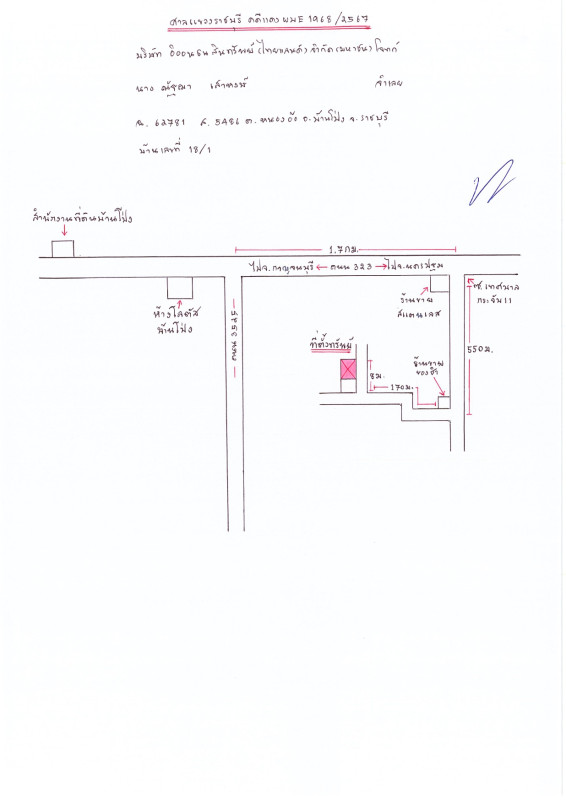 ศาลแขวงราชบุรี คดีแดง ผบE 1968/2567
บริษัท อิออนธนสินทรัพย์ (ไทยแลนด์) จำกัด (มหาชน) โจทก์
นาง ณัฐณา จำเลย
ฉ. 62781 ส. 5486 ต. หนองอ้อ อ.บ้านโป่ง จ.ราชบุรี
บ้านเลขที่ 18/1
สำนักงานที่ดินบ้านโป่ง
1.7 กม.
ไปจ.กาญจนบุรี ← ถนน 323 → ไปจ.นครปฐม
ซ.เทศบาล
กระจับ 11
ร้านขาย
สแตนเลส
ห้างโลตัส
บ้านโป่ง
ถนน 3595
ที่ตั้งทรัพย์
550 ม.
ร้านขาย
ของชำ
8 ม.
170 ม.